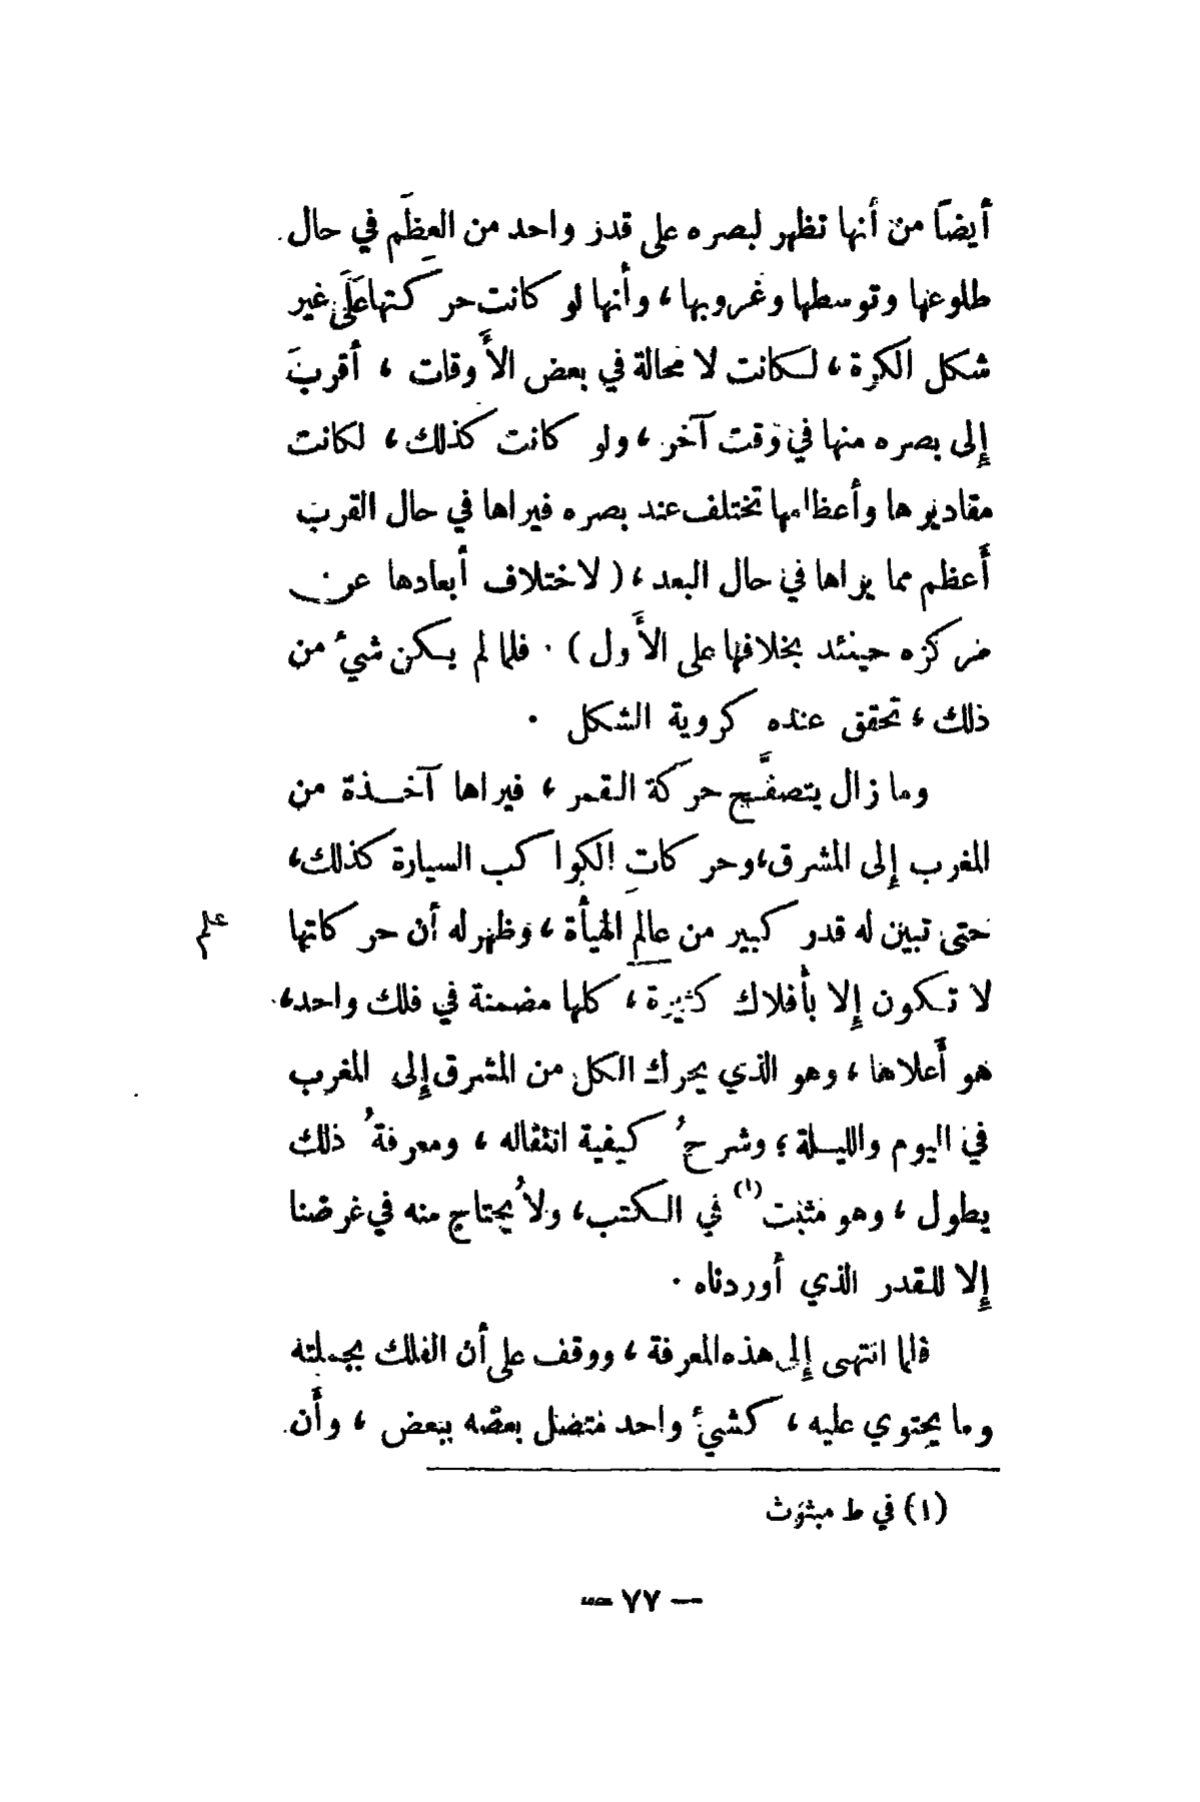 أيضاً من أنها تظهر لبصره على قدر واحد من العِظَم في حال
طلوعها وتوسطها وغروبها ، وأنها لو كانت حركتها عَلَى غير
شكل الكرة ، لكانت لا محالة في بعض الأَوقات ، أقربَ
إِلى بصره منها في وقت آخر ، ولو كانت كذلك ، لكانت
مقاديرها وأعظامها تختلف عند بصره فيراها في حال القرب
أَعظم مما يراها في حال البعد ، ( لاختلاف أبعادها عن
مركزه حينئد بخلافها على الأَول ) . فلما لم يكن شيءٌ من
ذلك ، تحقق عنده كروية الشكل .
وما زال يتصفَّح حركة القمر ، فيراها آخذة من
المغرب إِلى المشرق ، وحركاتِ الكواكب السيارة كذلك ،
حتى تبين له قدر كبير من عالم الهيأة ، وظهر له أن حركاتها
علم
لا تكون إِلا بأفلاك كثيرة ، كلها مضمنة في فلك واحد ،
هو أَعلاها ، وهو الذي يحرك الكل من المشرق إِلى المغرب
في اليوم والليلة ؛ وشرحُ كيفية انتقاله ، ومعرفةُ ذلك
يطول ، وهو مثبت (١) في الكتب ، ولا يُحتاج منه في غرضنا
إِلا للقدر الذي أوردناه .
فلما انتهى إِلى هذه المعرفة ، ووقف على أن الفلك بجملته
وما يحتوي عليه ، كشيءٍ واحد متصل بعضه ببعض ، وأَن
(١) في ط مبثوث
— ٧٧ —